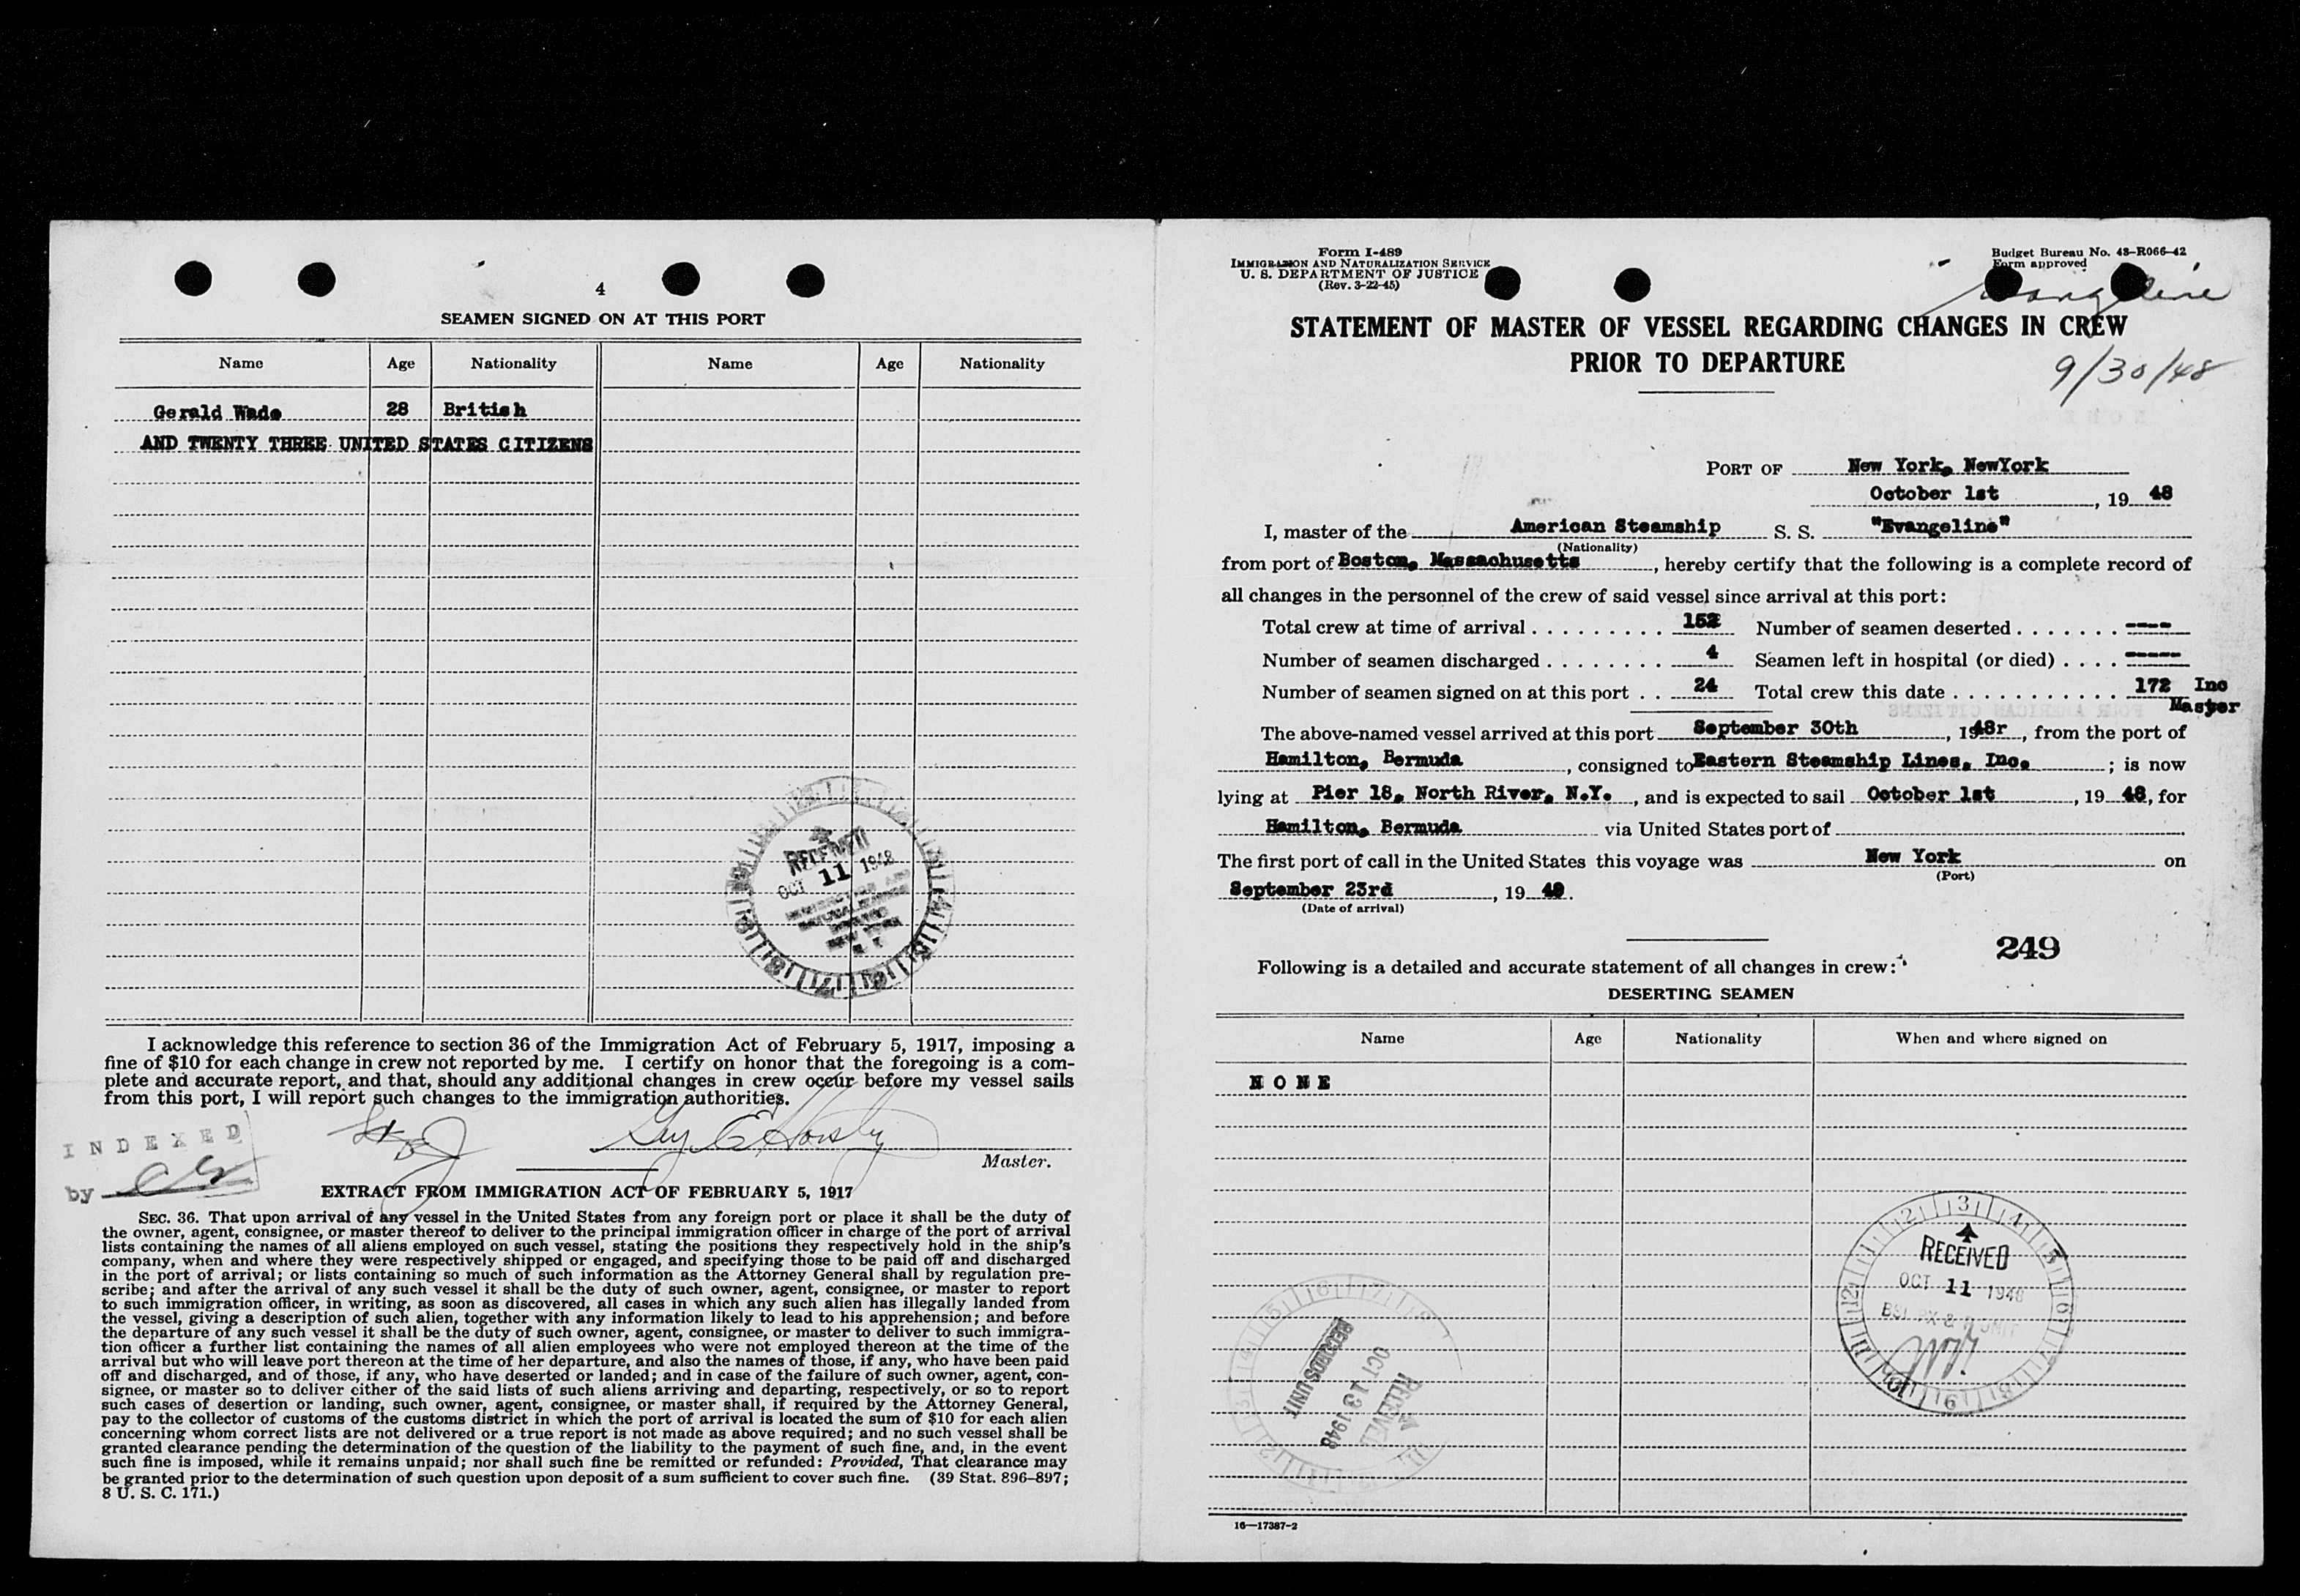 4
SEAMEN SIGNED ON AT THIS PORT
Name Age Nationality Name Age Nationality
Gerald Wade 28 British
AND TWENTY THREE UNITED STATES CITIZENS
RECEIVED
OCT 11 1948
I acknowledge this reference to section 36 of the Immigration Act of February 5, 1917, imposing a
fine of $10 for each change in crew not reported by me. I certify on honor that the foregoing is a com-
plete and accurate report, and that, should any additional changes in crew occur before my vessel sails
from this port, I will report such changes to the immigration authorities.
INDEXED
by
Master.
EXTRACT FROM IMMIGRATION ACT OF FEBRUARY 5, 1917
SEC. 36. That upon arrival of any vessel in the United States from any foreign port or place it shall be the duty of
the owner, agent, consignee, or master thereof to deliver to the principal immigration officer in charge of the port of arrival
lists containing the names of all aliens employed on such vessel, stating the positions they respectively hold in the ship's
company, when and where they were respectively shipped or engaged, and specifying those to be paid off and discharged
in the port of arrival; or lists containing so much of such information as the Attorney General shall by regulation pre-
scribe; and after the arrival of any such vessel it shall be the duty of such owner, agent, consignee, or master to report
to such immigration officer, in writing, as soon as discovered, all cases in which any such alien has illegally landed from
the vessel, giving a description of such alien, together with any information likely to lead to his apprehension; and before
the departure of any such vessel it shall be the duty of such owner, agent, consignee, or master to deliver to such immigra-
tion officer a further list containing the names of all alien employees who were not employed thereon at the time of the
arrival but who will leave port thereon at the time of her departure, and also the names of those, if any, who have been paid
off and discharged, and of those, if any, who have deserted or landed; and in case of the failure of such owner, agent, con-
signee, or master so to deliver either of the said lists of such aliens arriving and departing, respectively, or so to report
such cases of desertion or landing, such owner, agent, consignee, or master shall, if required by the Attorney General,
pay to the collector of customs of the customs district in which the port of arrival is located the sum of $10 for each alien
concerning whom correct lists are not delivered or a true report is not made as above required; and no such vessel shall be
granted clearance pending the determination of the question of the liability to the payment of such fine, and, in the event
such fine is imposed, while it remains unpaid; nor shall such fine be remitted or refunded: Provided, That clearance may
be granted prior to the determination of such question upon deposit of a sum sufficient to cover such fine. (39 Stat. 896-897;
8 U. S. C. 171.)
Form I-489
IMMIGRATION AND NATURALIZATION SERVICE
U. S. DEPARTMENT OF JUSTICE
(Rev. 3-22-45)
Budget Bureau No. 43-R066-42
Form approved
STATEMENT OF MASTER OF VESSEL REGARDING CHANGES IN CREW
PRIOR TO DEPARTURE
9/30/48
PORT OF New York, NewYork
October 1st, 19 48
I, master of the American Steamship S. S. "Evangeline"
(Nationality)
from port of Boston, Massachusetts, hereby certify that the following is a complete record of
all changes in the personnel of the crew of said vessel since arrival at this port:
Total crew at time of arrival . . . . . . . . . 152 Number of seamen deserted . . . . . . . ----
Number of seamen discharged . . . . . . . . 4 Seamen left in hospital (or died) . . . . -----
Number of seamen signed on at this port . . 24 Total crew this date . . . . . . . . . . . 172 Inc
Master
The above-named vessel arrived at this port September 30th, 1948r, from the port of
Hamilton, Bermuda, consigned to Eastern Steamship Lines, Inc. ; is now
lying at Pier 18, North River, N.Y. , and is expected to sail October 1st, 19 48, for
Hamilton, Bermuda via United States port of
The first port of call in the United States this voyage was New York on
(Port)
September 23rd, 19 48.
(Date of arrival)
249
Following is a detailed and accurate statement of all changes in crew:
DESERTING SEAMEN
Name Age Nationality When and where signed on
NONE
RECEIVED
OCT 11 1948
RECORDS UNIT
OCT 13 1948
RECEIVED
16—17387-2